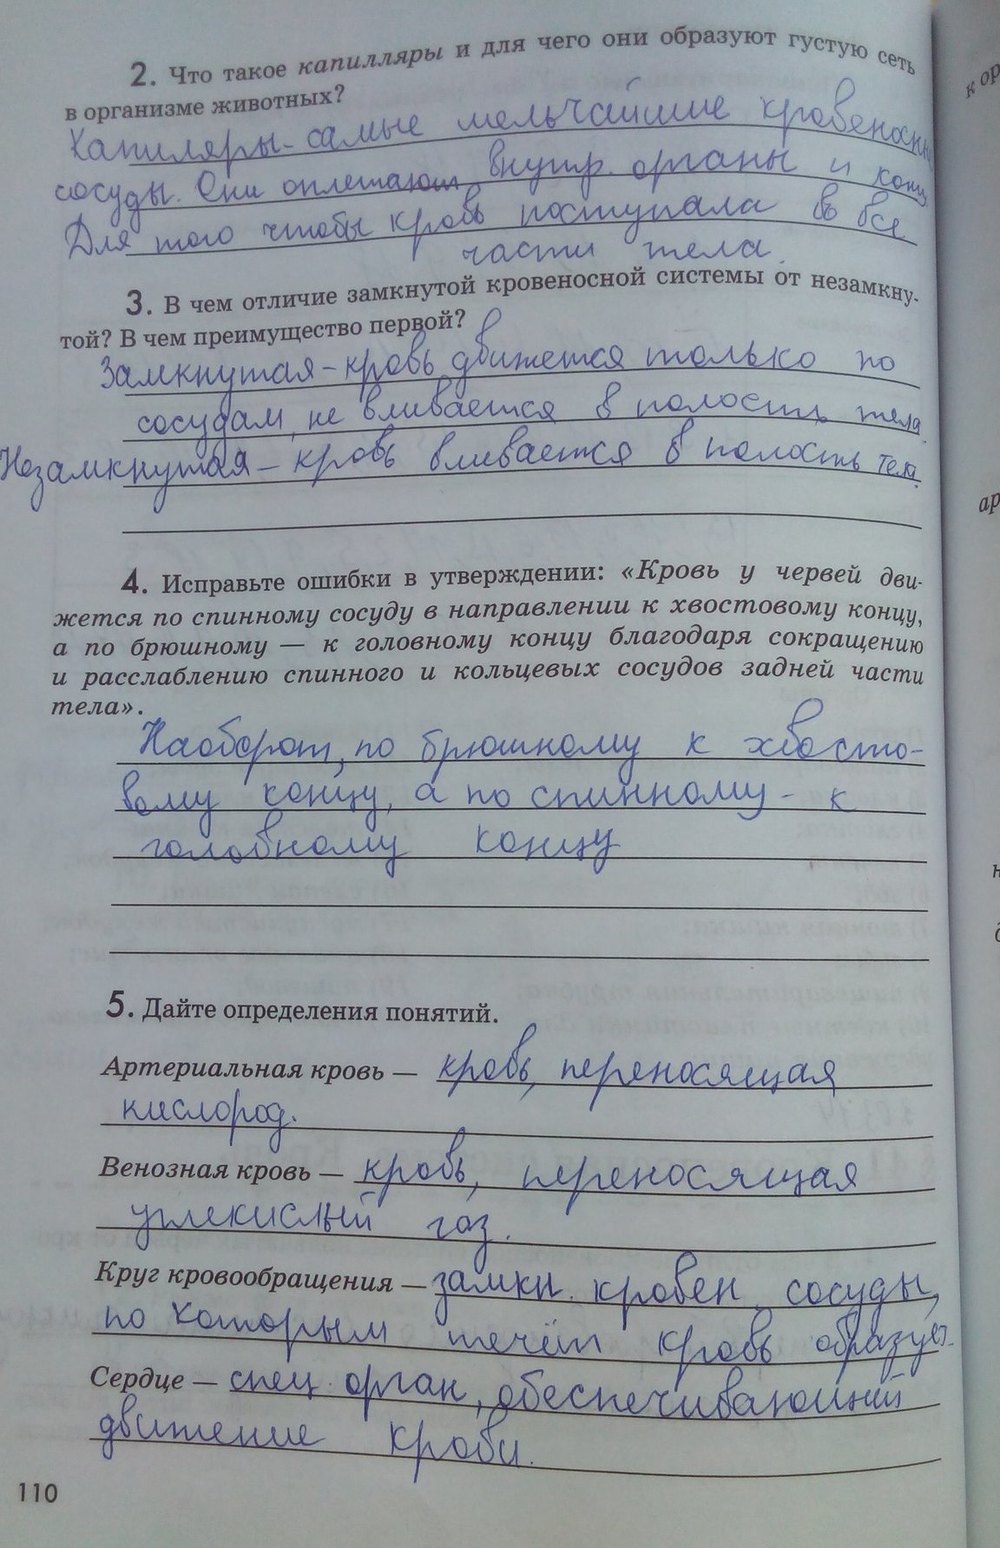 2. Что такое капилляры и для чего они образуют густую сеть
в организме животных?
Капиляры - самые мельчайшие кровеносны
сосуды. Они оплетают внутр. органы и кожу
Для того чтобы кровь поступала во все
части тела.
3. В чем отличие замкнутой кровеносной системы от незамкну-
той? В чем преимущество первой?
Замкнутая - кровь движется только по
сосудам, не вливается в полость тела.
Незамкнутая - кровь вливается в полость тела.
4. Исправьте ошибки в утверждении: «Кровь у червей дви-
жется по спинному сосуду в направлении к хвостовому концу,
а по брюшному — к головному концу благодаря сокращению
и расслаблению спинного и кольцевых сосудов задней части
тела».
Наоборот, по брюшному к хвосто-
вому концу, а по спинному - к
головному концу
5. Дайте определения понятий.
Артериальная кровь — кровь, переносящая
кислород.
Венозная кровь — кровь, переносящая
углекислый газ.
Круг кровообращения — замкн. кровен. сосуды,
по которым течёт кровь образует
Сердце — спец. орган, обеспечивающий
движение крови.
110
к ор
ар
н